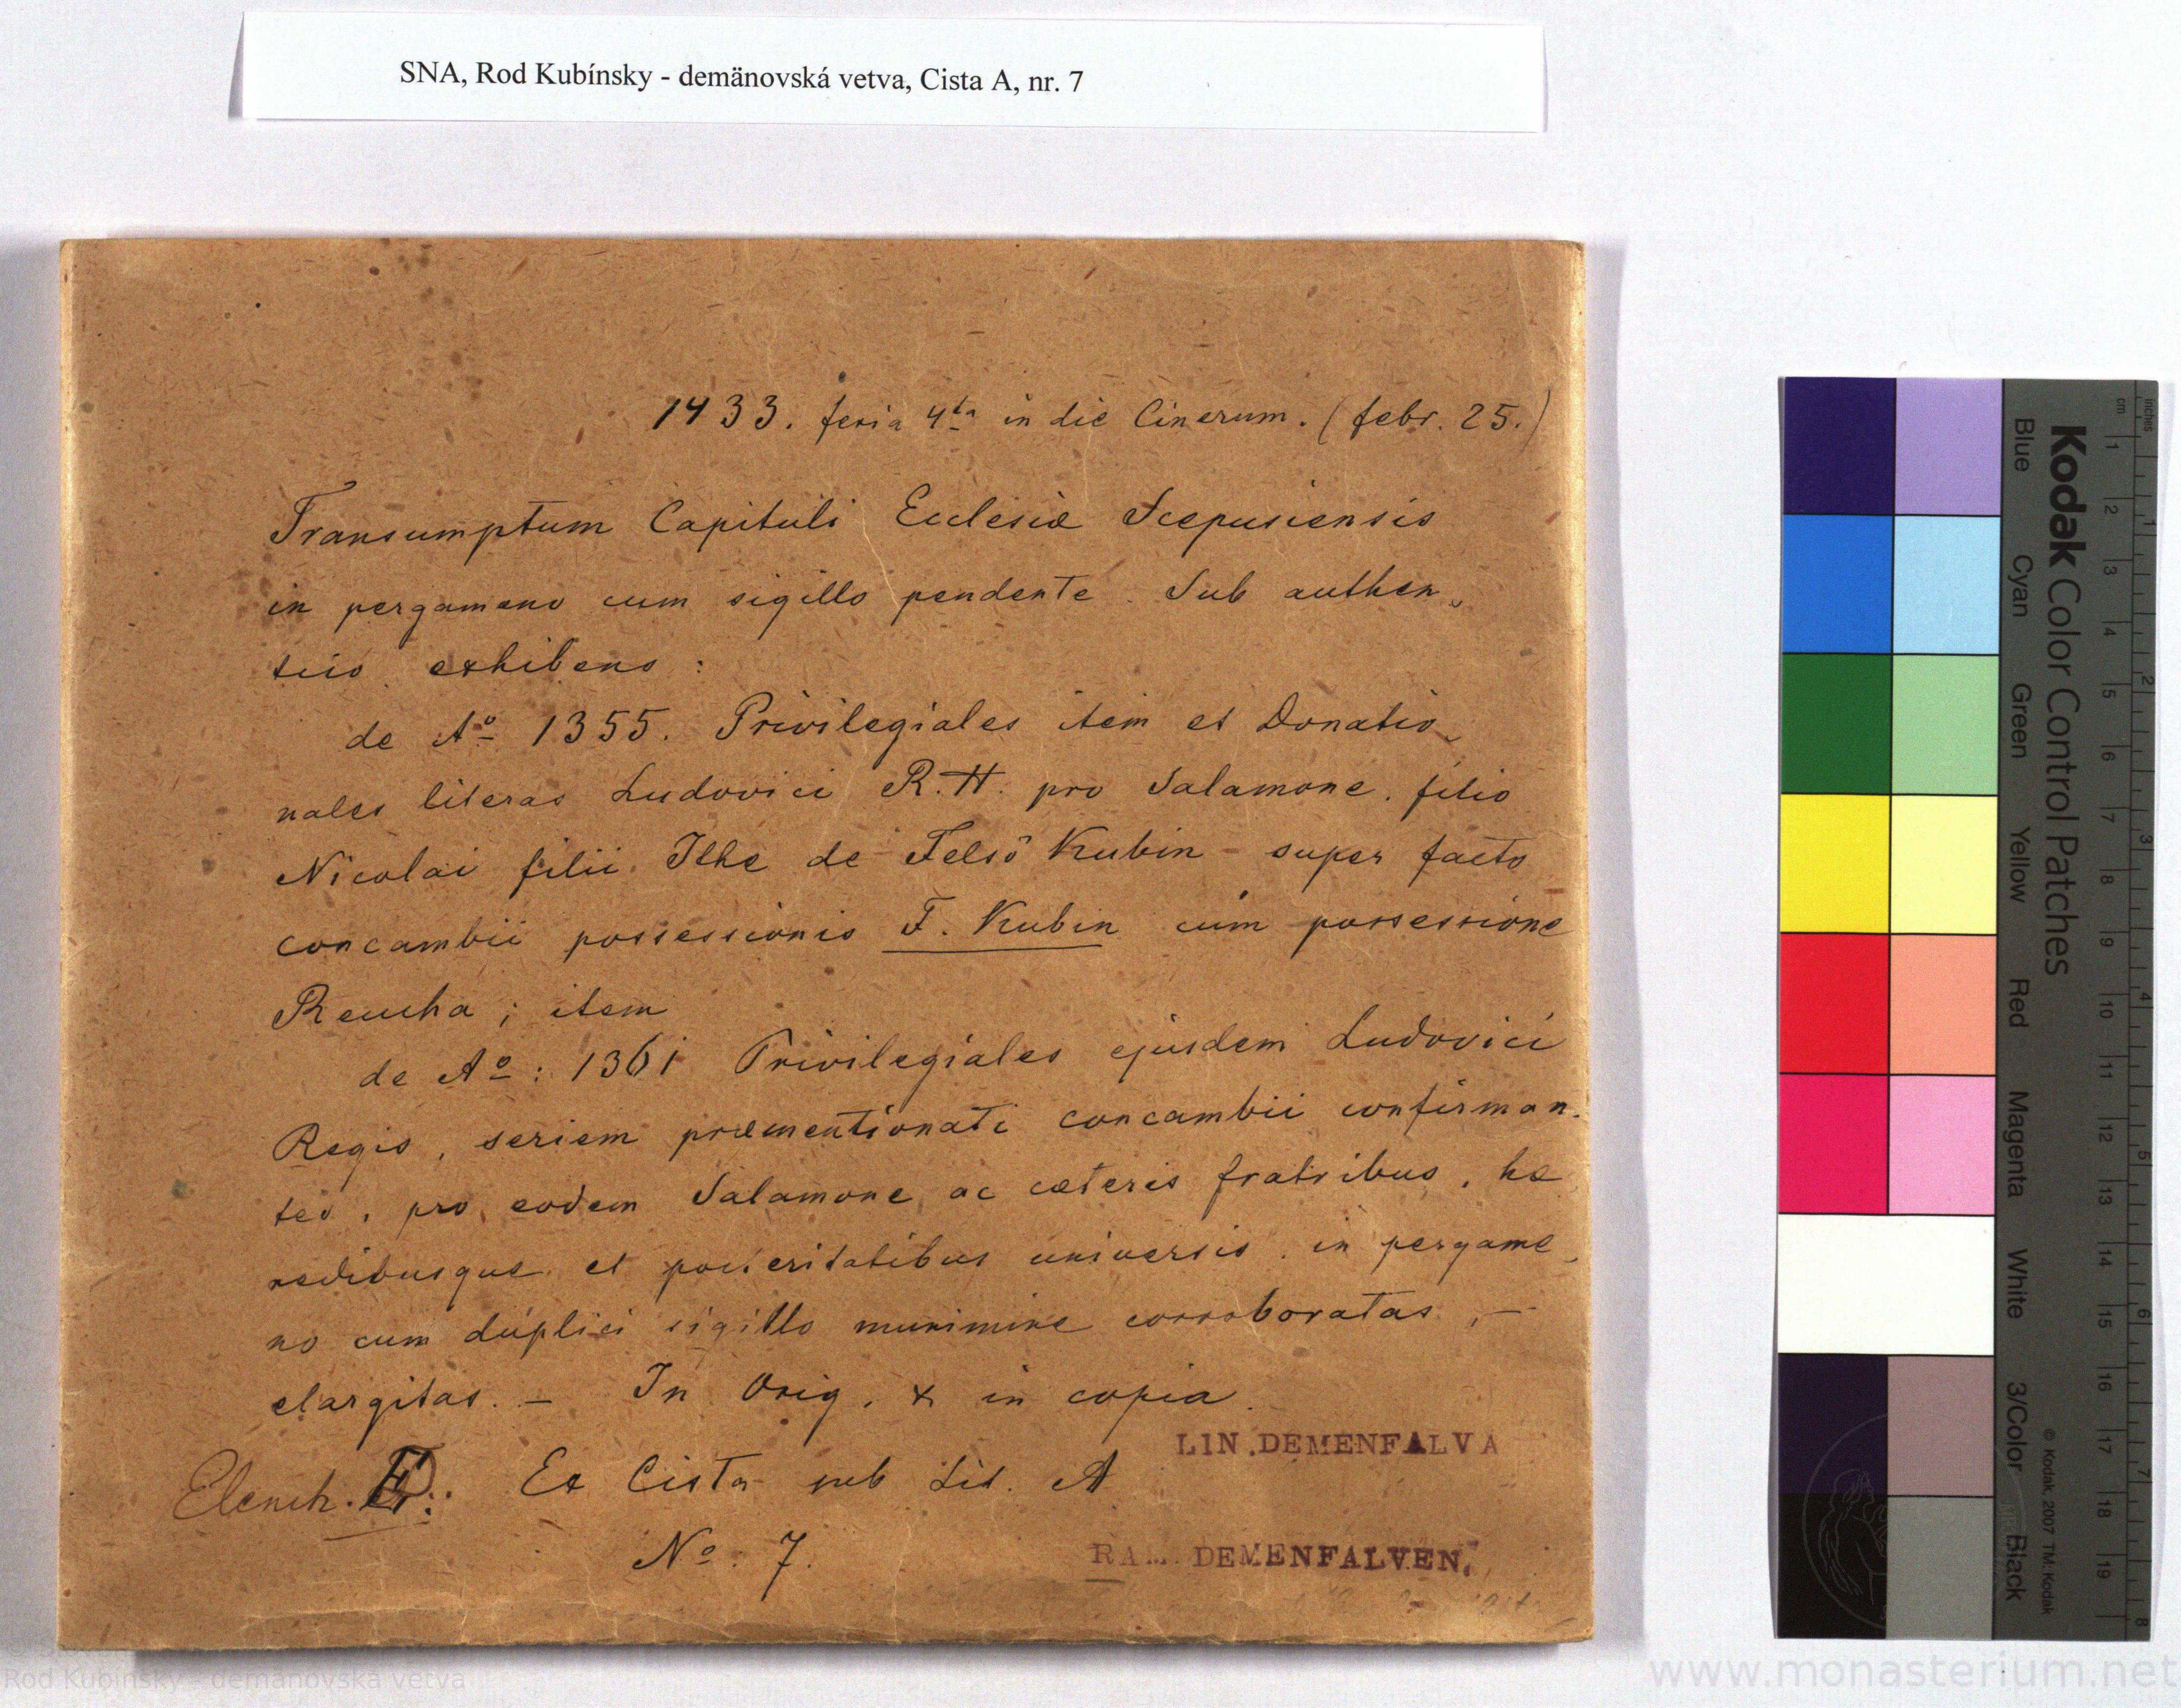 SNA, Rod Kubínsky - demänovská vetva, Cista A, nr. 7
1433. feria 4ta in die Cinerum. (febr. 25.)
Transumptum Capituli Ecclesiæ Scepusiensis
in pergameno cum sigillo pendente. Sub authen„
ticis exhibens :
de Ao 1355. Privilegiales item et Donatio„
nales literas Ludovici R. H. pro Salamone, filio
Nicolai filii Ithe de Felsö Kubin - super facto
concambii possessionis F. Kubin cum possessione
Reucha ; item
de Ao : 1361 Privilegiales ejusdem Ludovici
Regis, seriem præmentionati concambii confirman„
tes, pro eodem Salamone ac cæteris fratribus, hæ
redibusque et posteritatibus universis in pergame„
no cum duplici sigillo munimine corroboratas, —
elargitas. — In Orig. & in copia.
LIN. DEMENFALVA
Elench. Ex Cista sub Lit. A
No. 7.
DEMENFALVEN.
Kodak Color Control Patches
Blue Cyan Green Yellow Red Magenta White 3/Color Black
inches 1 2 3 4 5 6 7 8
cm 1 2 3 4 5 6 7 8 9 10 11 12 13 14 15 16 17 18 19
© Kodak, 2007 TM: Kodak
Rod Kubínsky - demänovská vetva
www.monasterium.net